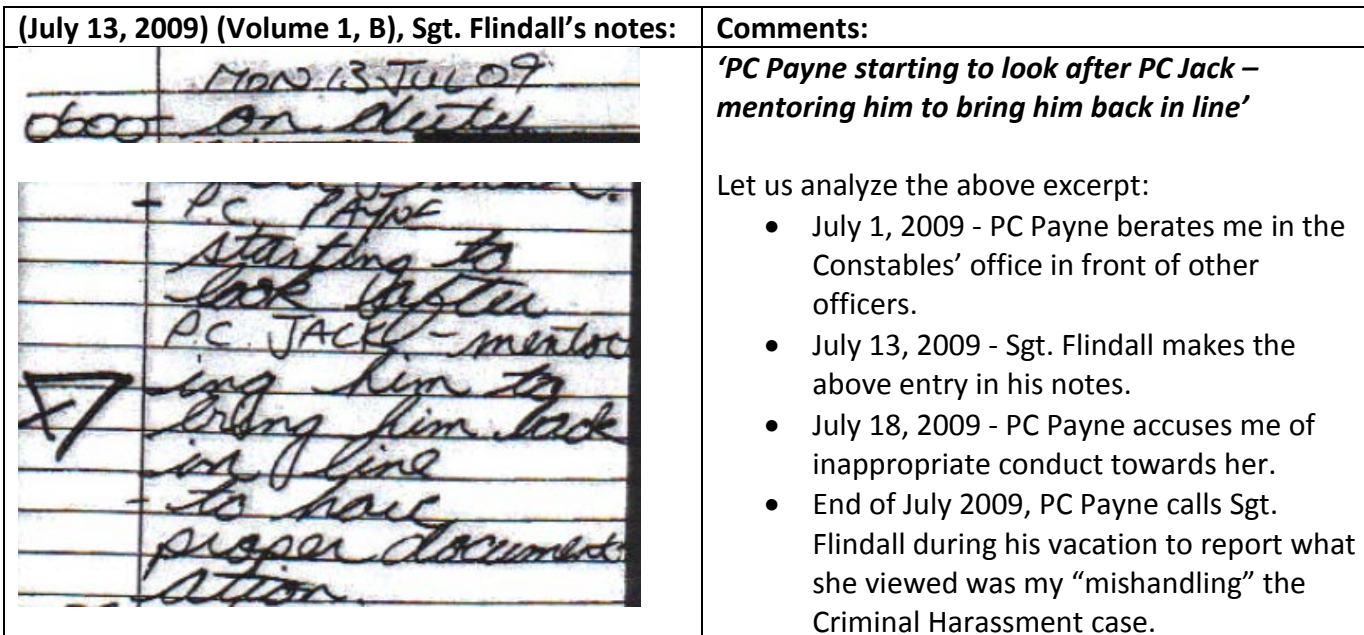 (July 13, 2009) (Volume 1, B), Sgt. Flindall’s notes:
MON 13 JUL 09
0600 On duty
- P.C. PAYNE
starting to
look after
P.C. JACK - mentor
ing him to
bring him back
in line
- to have
proper document
ation.
Comments:
‘PC Payne starting to look after PC Jack –
mentoring him to bring him back in line’
Let us analyze the above excerpt:
• July 1, 2009 - PC Payne berates me in the
Constables’ office in front of other
officers.
• July 13, 2009 - Sgt. Flindall makes the
above entry in his notes.
• July 18, 2009 - PC Payne accuses me of
inappropriate conduct towards her.
• End of July 2009, PC Payne calls Sgt.
Flindall during his vacation to report what
she viewed was my “mishandling” the
Criminal Harassment case.